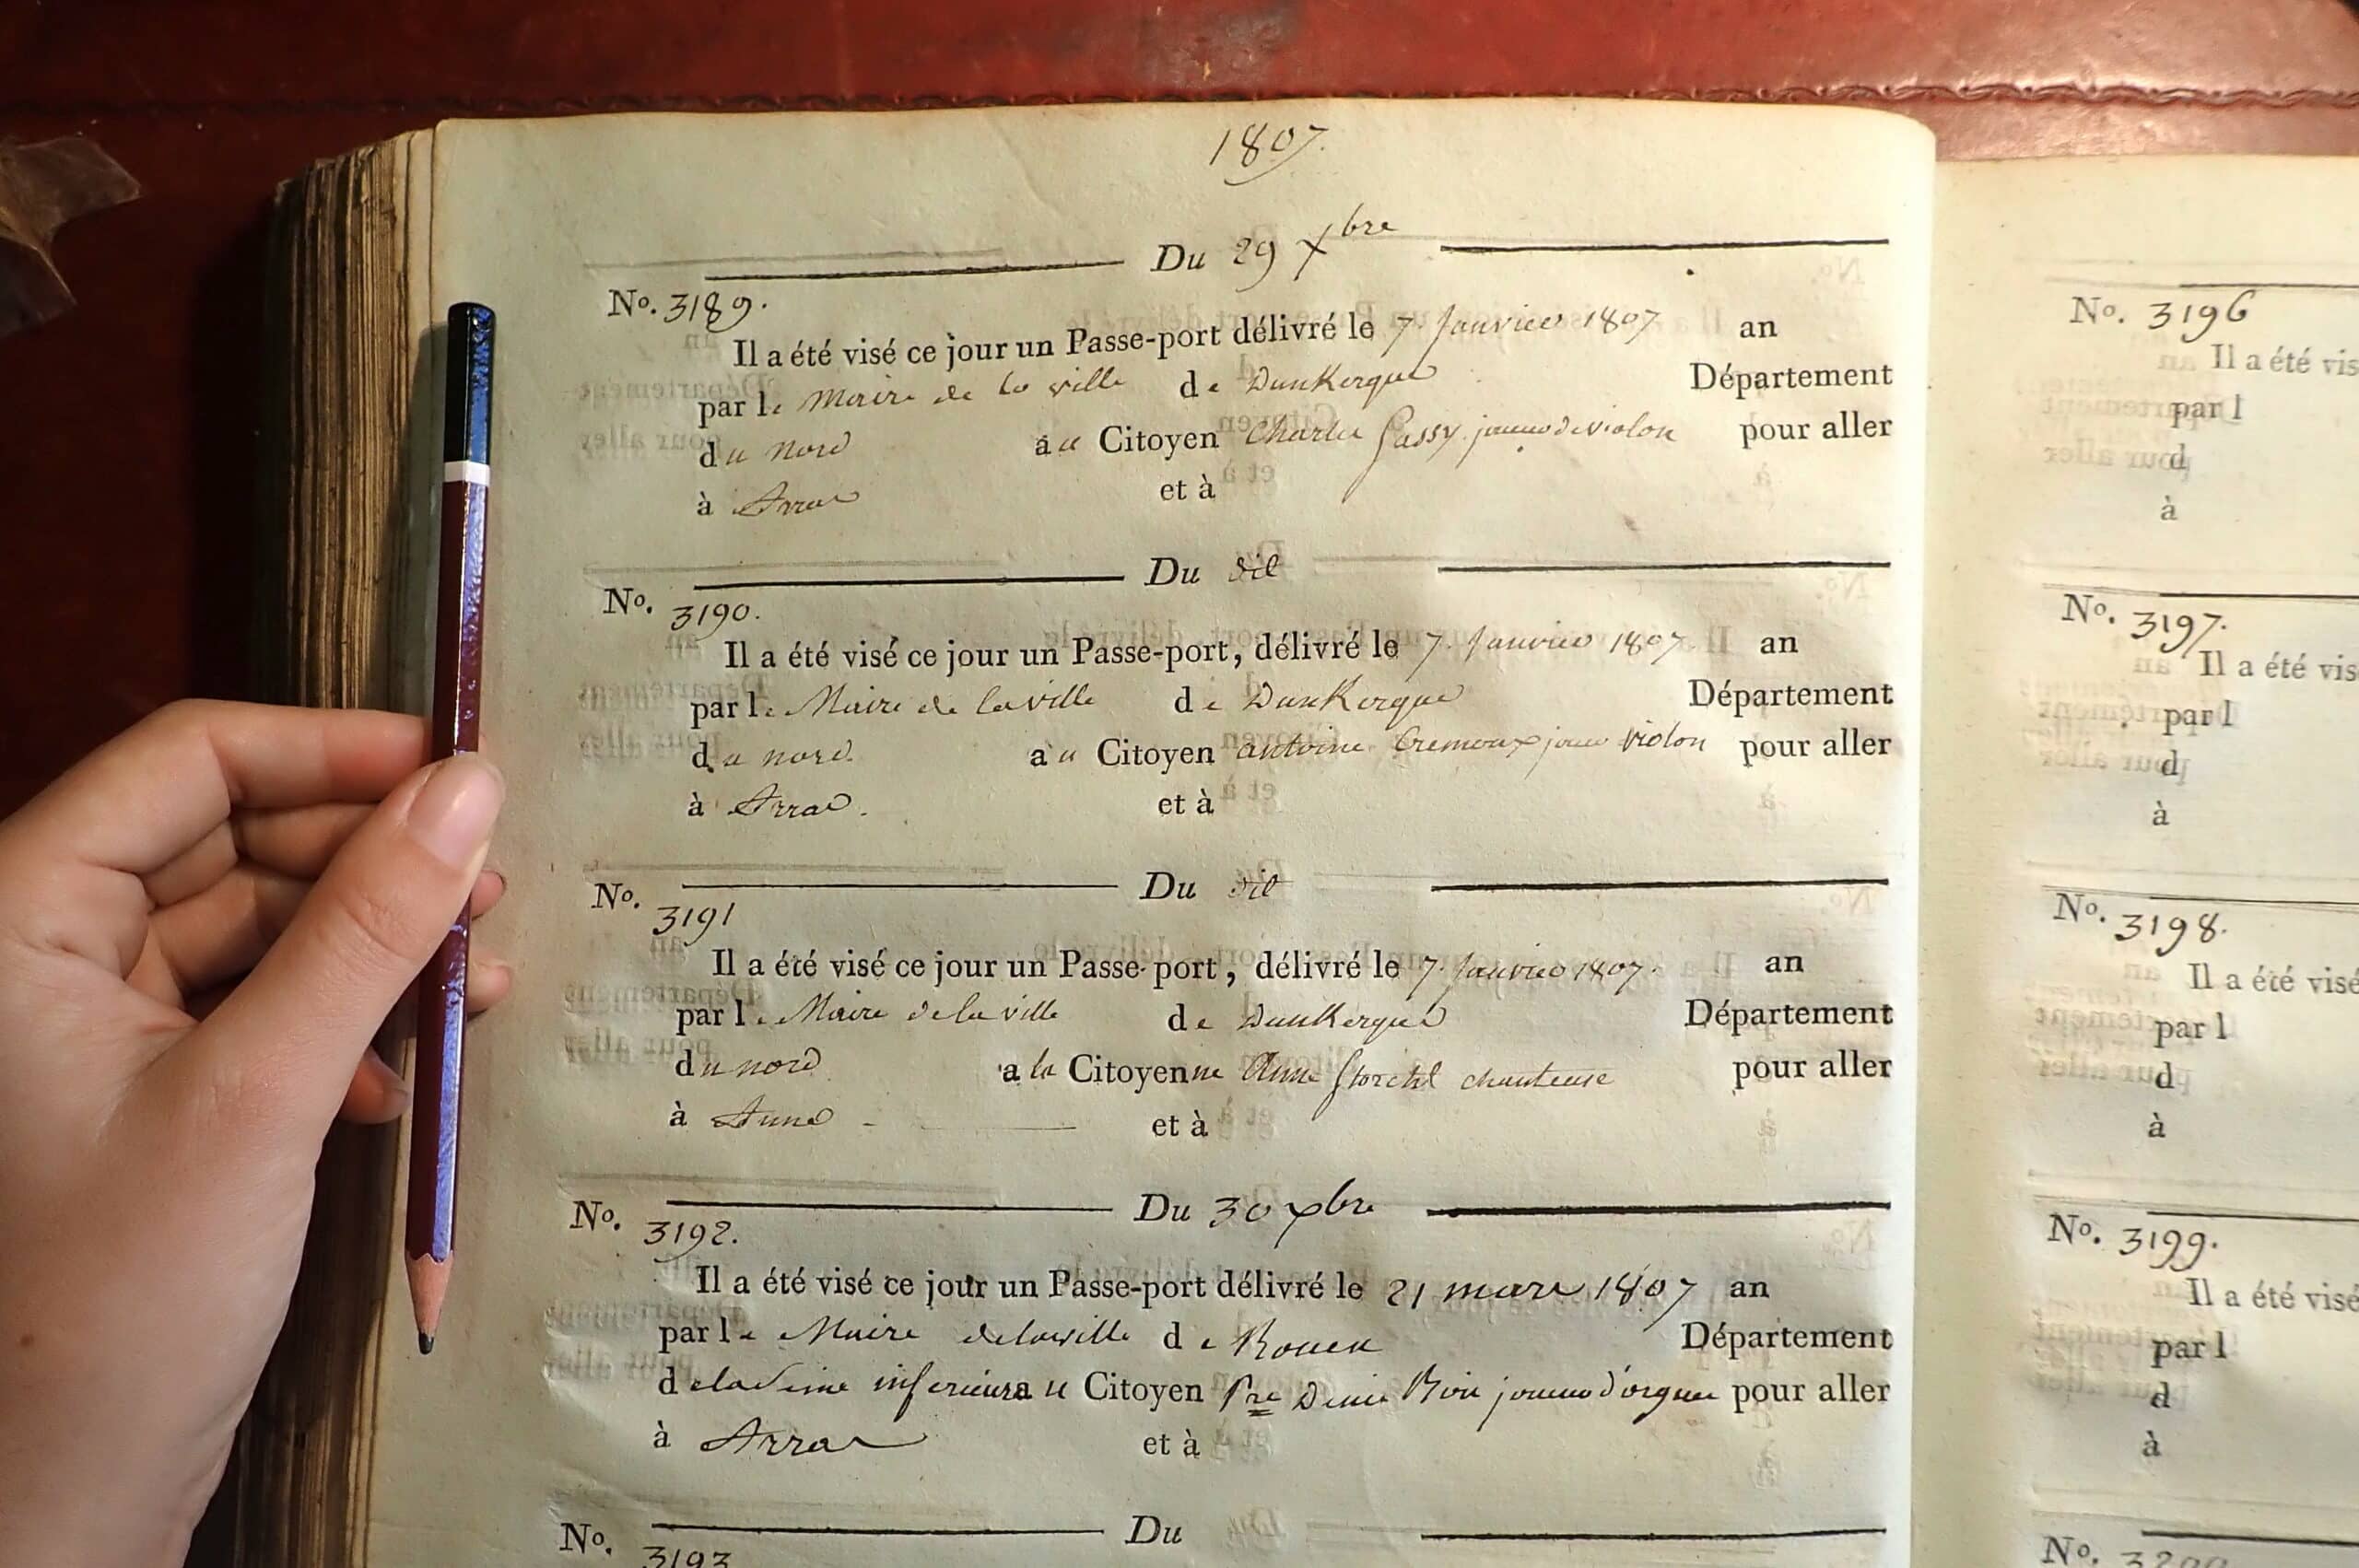 1807.
Du 29 Xbre
No. 3189.
Il a été visé ce jour un Passe-port délivré le 7. Janvier 1807 an
par le Maire de la ville de Dunkerque Département
du Nord au Citoyen Charles Gassy joueur de violon pour aller
à Arras et à
Du dit
No. 3190.
Il a été visé ce jour un Passe-port, délivré le 7. Janvier 1807. an
par le Maire de la ville de Dunkerque Département
du nord. au Citoyen antoine Cremoux joueur violon pour aller
à Arras. et à
Du dit
No. 3191
Il a été visé ce jour un Passe-port, délivré le 7. Janvier 1807. an
par le Maire de la ville de Dunkerque Département
du nord a la Citoyenne Anne chanteuse pour aller
à et à
Du 30 xbre
No. 3192.
Il a été visé ce jour un Passe-port délivré le 21 mars 1807 an
par le Maire de la ville de Rouen Département
de la Seine inferieure au Citoyen Pre Denis joueur d'orgues pour aller
à Arras et à
Du
No. 3193
No. 3196
Il a été vis
par l
d
à
No. 3197.
Il a été vis
par l
d
à
No. 3198.
Il a été visé
par l
d
à
No. 3199.
Il a été visé
par l
d
à
No.